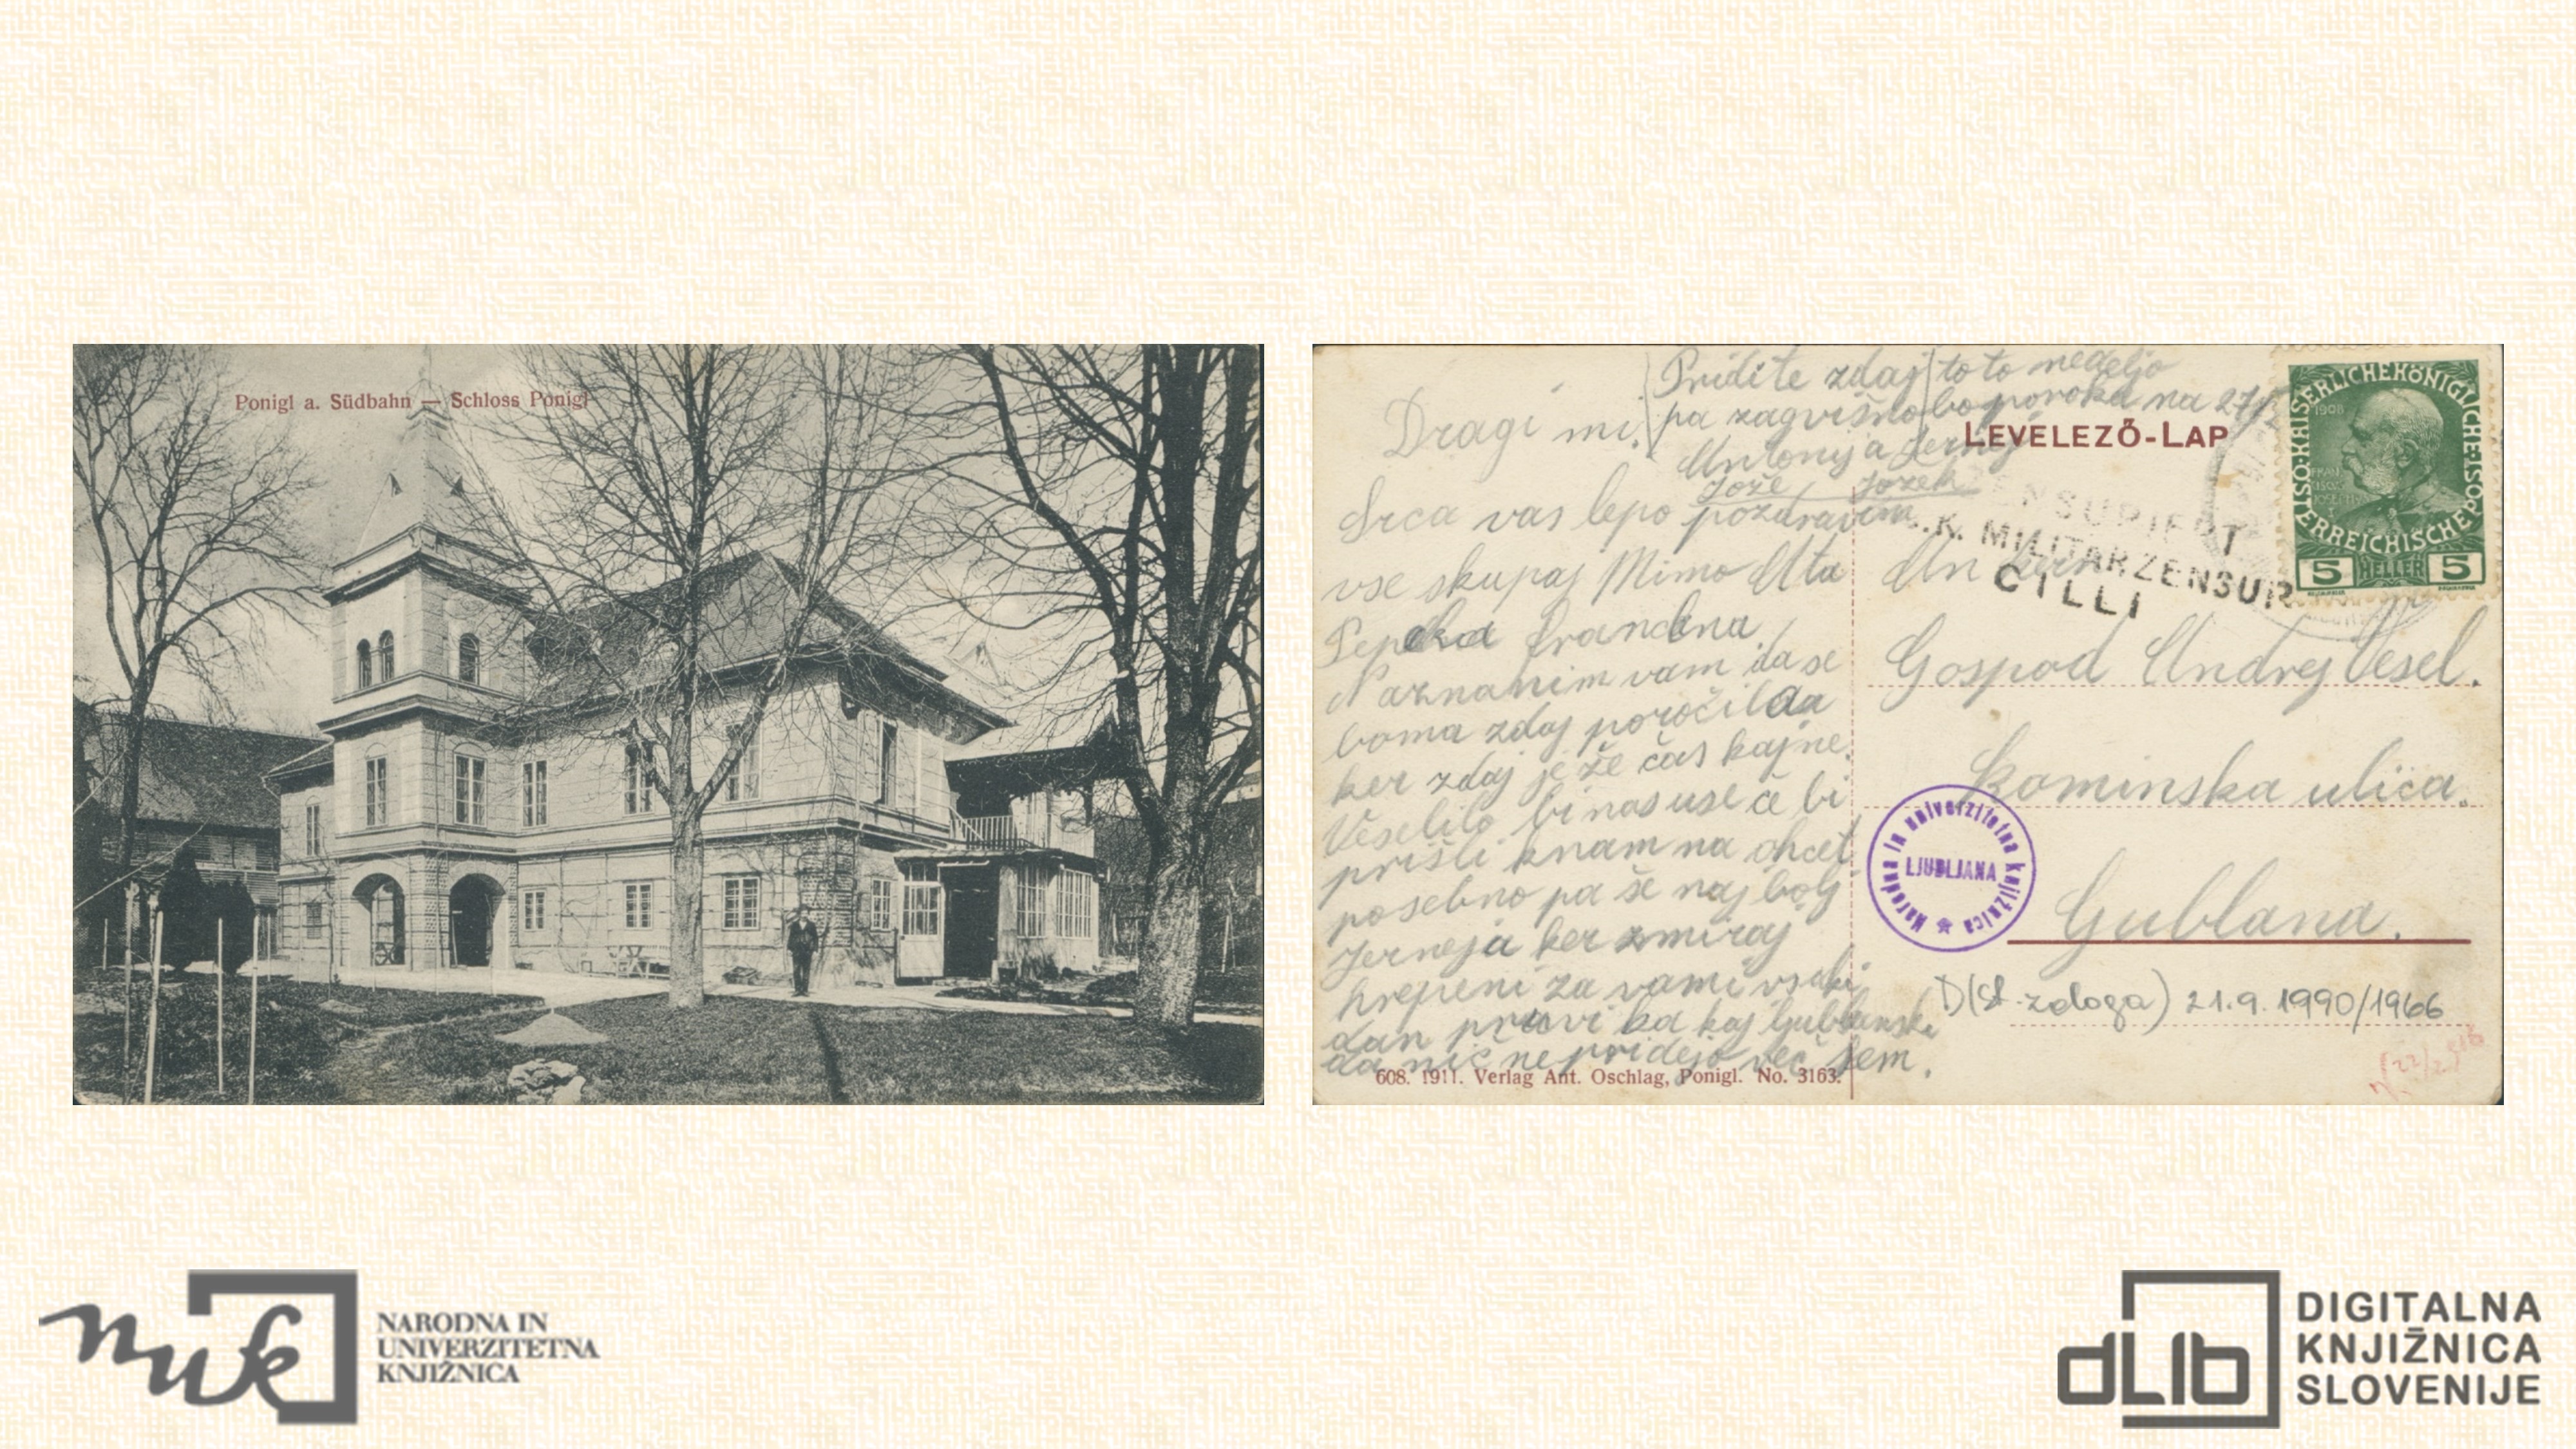 Ponigl a. Südbahn — Schloss Ponigl
Pridite zdaj to to nedeljo
pa zagvišno bo poroka na 27/2
Antonija Jernej
Jože Jozek
Dragi mi.
Srca vas lepo pozdravim
vse skupaj Mimo Ata
Pepcka Francina
Naznanim vam da se
boma zdaj poročila
ker zdaj je že čas kajne.
Veselilo bi nas use če bi
prišli knam na ohcet
posebno pa še naj bolj
Jerneja ker zmiraj
hrepeni za vami vsaki
dan pravi da kaj ljublanski
da nič ne pridejo več sem.
608. 1911. Verlag Ant. Oschlag, Ponigl. No. 3163.
LEVELEZŐ-LAP
ZENSURIERT
K.K. MILITÄRZENSUR
CILLI
1908
KAISERLICHEKÖNIGLICHE ÖSTERREICHISCHE POST
5 HELLER 5
An
Gospod Andrej Vesel.
Kominska ulica.
Gublana.
Narodna in univerzitetna knjižnica
LJUBLJANA
D(st. zaloga) 21.9.1990/1966
NARODNA IN
UNIVERZITETNA
KNJIŽNICA
nuk
dLib
DIGITALNA
KNJIŽNICA
SLOVENIJE